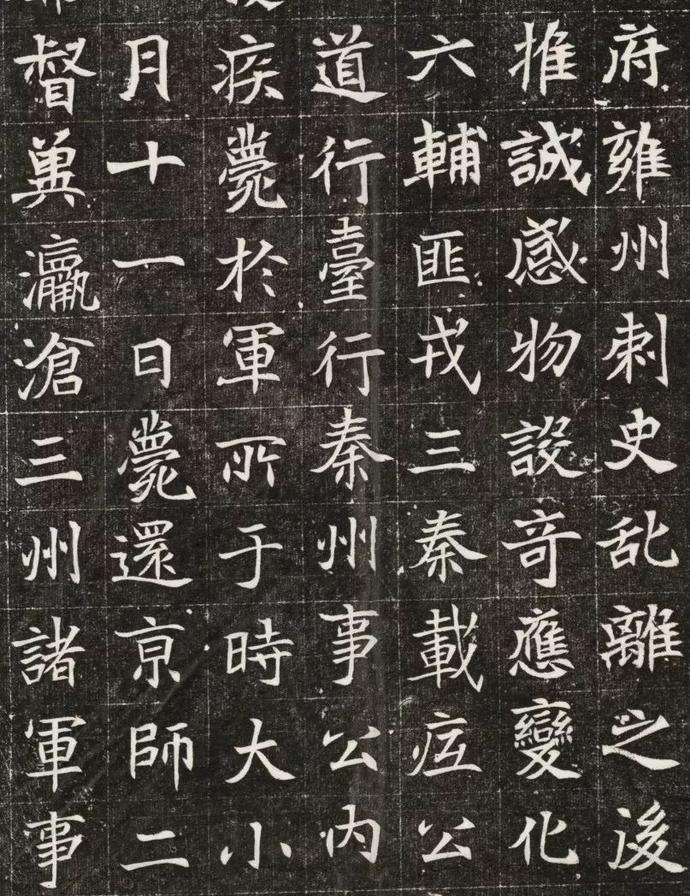 府雍州刺史乱離之後
推誠感物設奇應變化
六輔匪戎三秦載公
道行臺行秦州事公内
疾薨於軍所于時大小
月十一日薨還亰師二
督冀瀛滄三州諸軍事